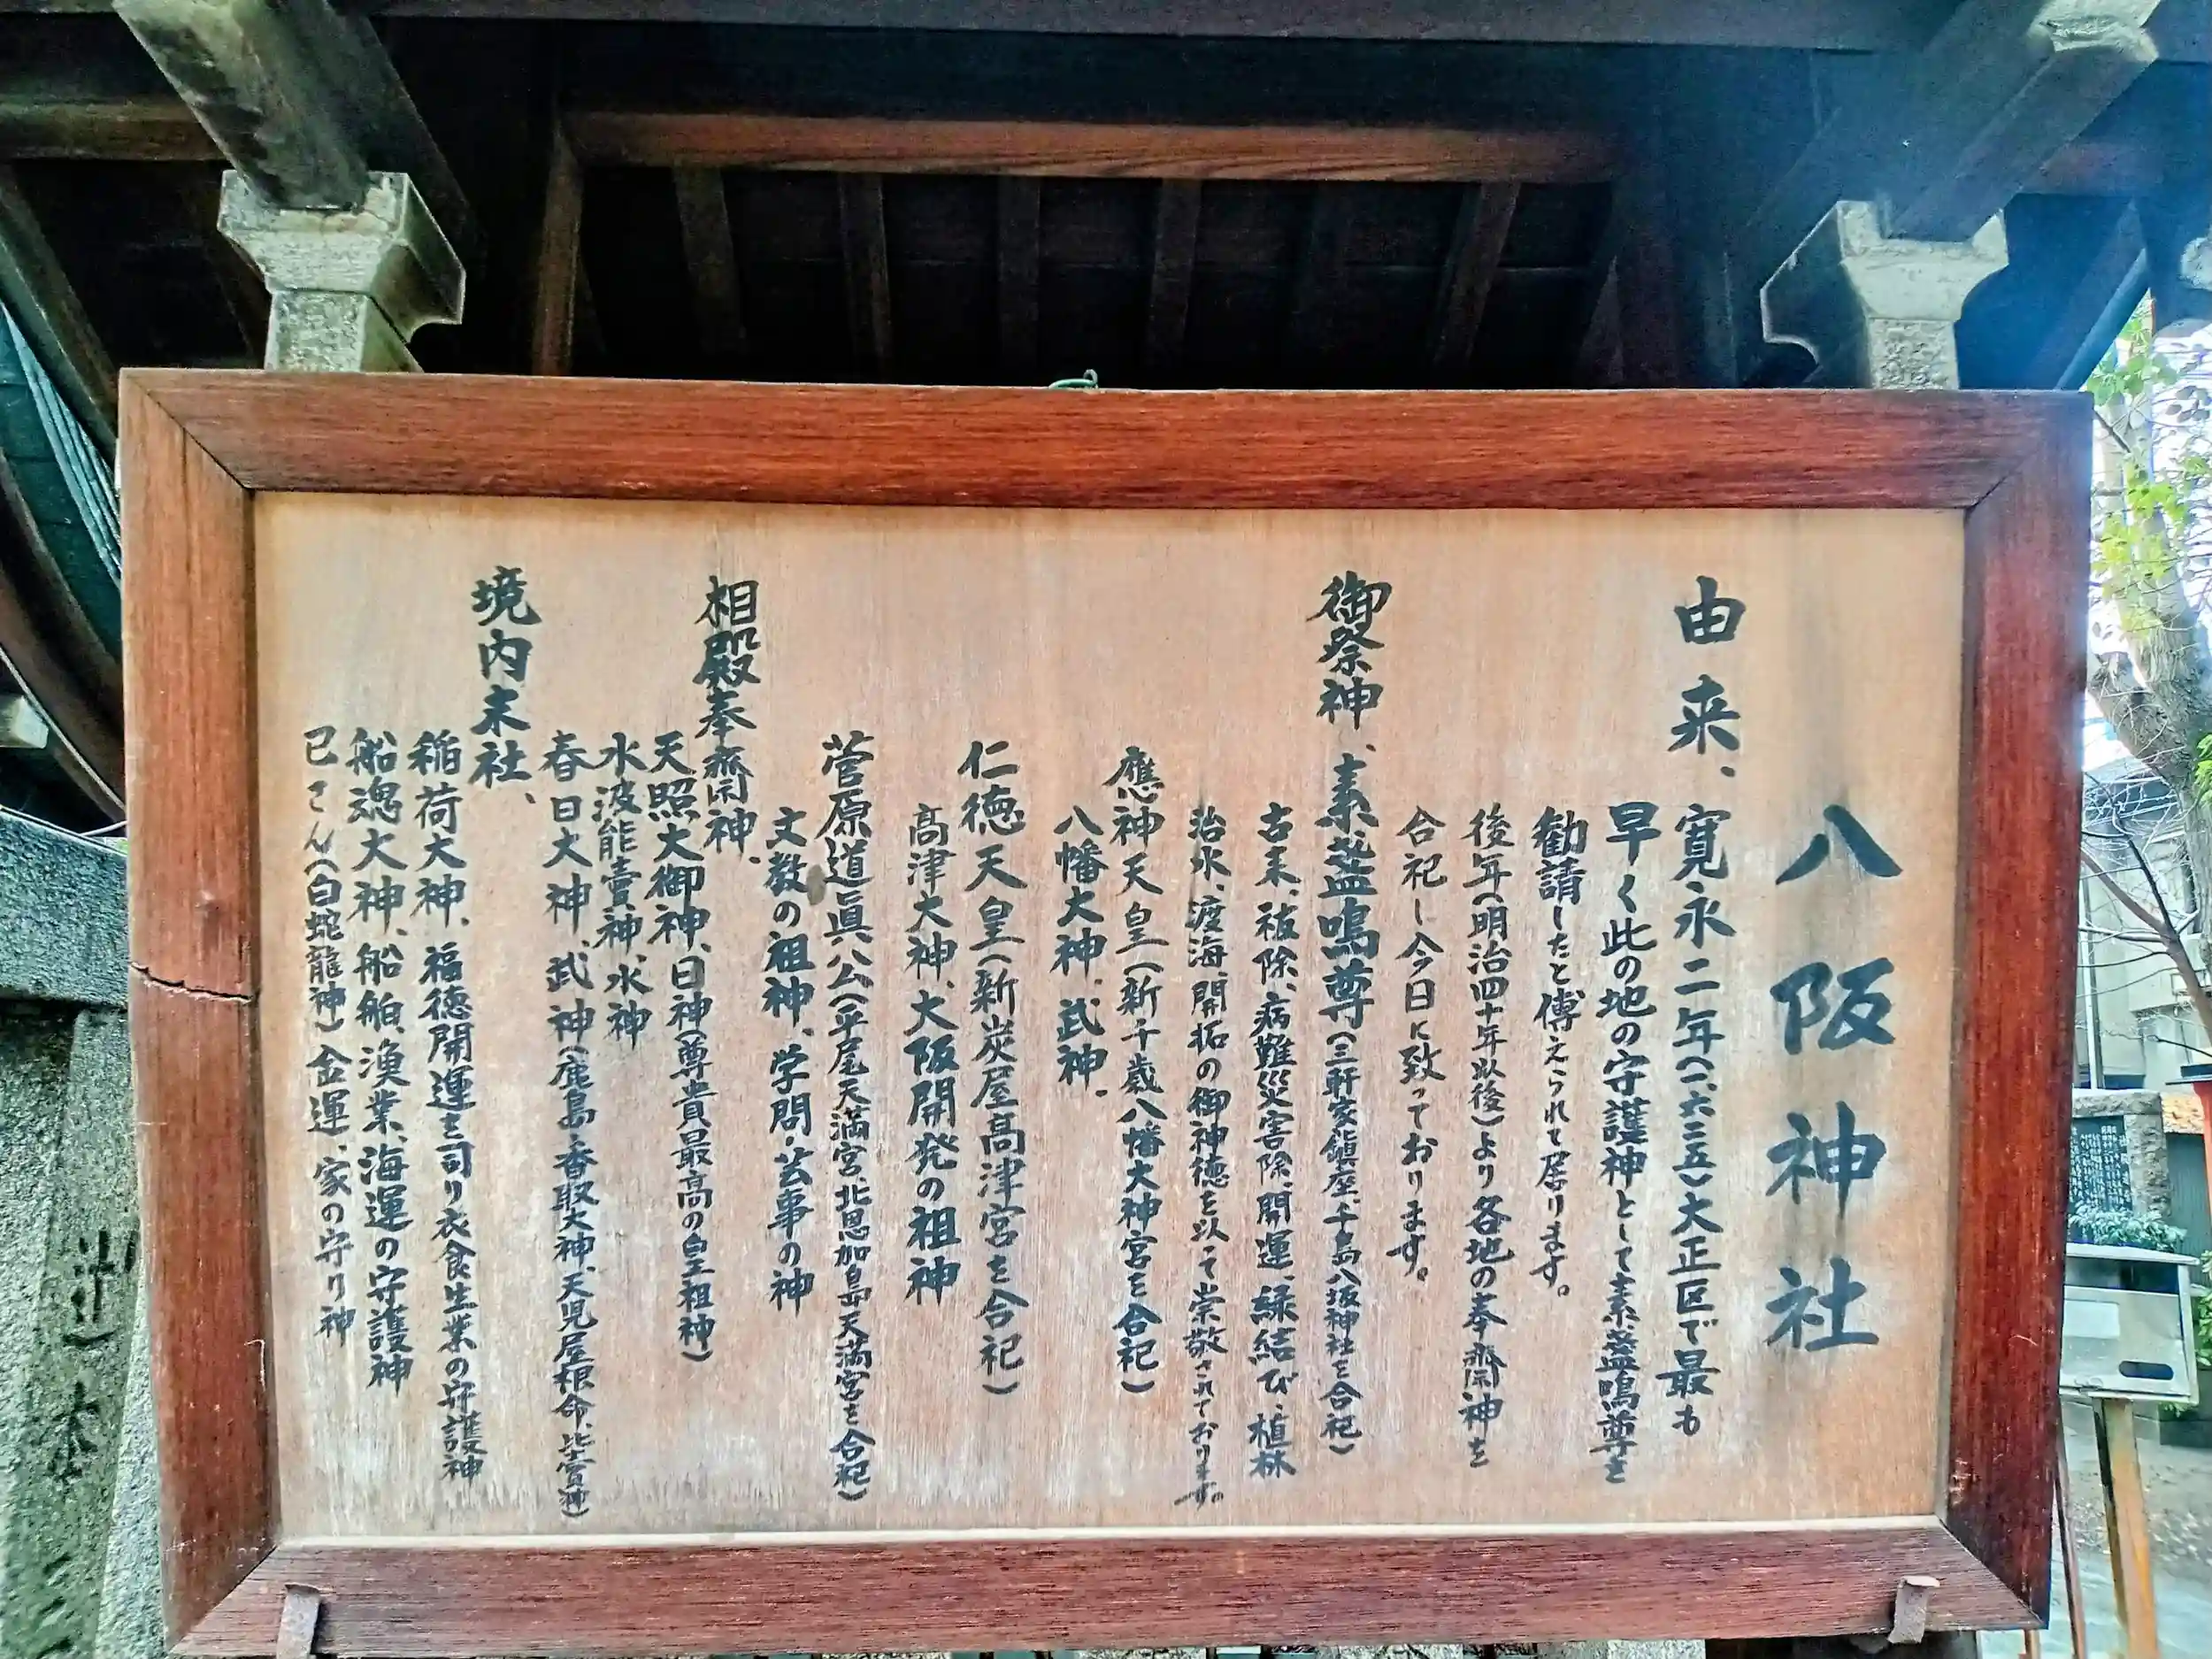 八阪神社
由来、寛永二年(一、六二五)大正区で最も
早く此の地の守護神として素盞嗚尊を
勧請したと傳えられて居ります。
後年(明治四十年以後)より各地の奉齋神を
合祀し今日に致っております。
御祭神、素盞嗚尊(三軒家鎮座、千島八坂神社を合祀)
古来、祓除、病難災害除、開運、縁結び、植林
治水、渡海、開拓の御神徳を以て崇敬されております。
應神天皇(新千歳八幡大神宮を合祀)
八幡大神、武神、
仁徳天皇(新炭屋高津宮を合祀)
高津大神、大阪開発の祖神
菅原道眞公(平尾天満宮、北恩加島天満宮を合祀)
文教の祖神、学問・芸事の神
相殿奉齋神、
天照大御神、日神(尊貴最高の皇祖神)
水波能賣神、水神
春日大神、武神(鹿島・香取大神、天児屋根命、比賣神)
境内末社、
稲荷大神、福徳開運を司り衣食生業の守護神
船魂大神、船舶、漁業、海運の守護神
巳さん(白蛇龍神)金運、家の守り神